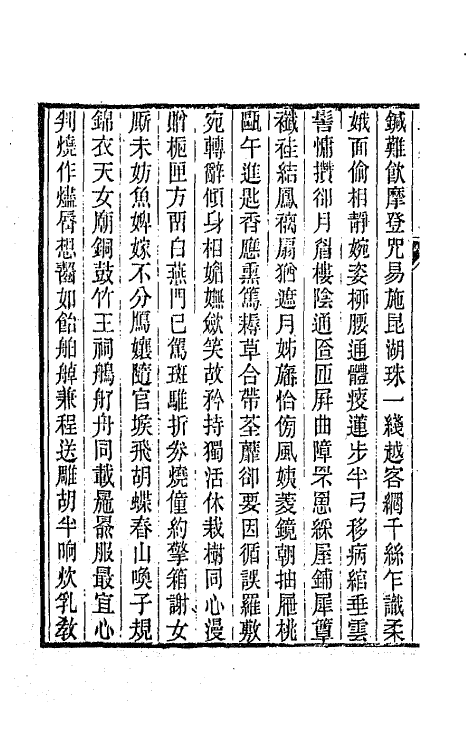 鍼難飲摩登咒易施昆湖珠一綫越客網千絲乍識柔
娥面偷相靜婉姿柳腰通體瘦蓮步半弓移病綰垂雲
髻慵攢卻月眉樓陰通匼匝屏曲障罘罳綵屋鋪犀簟
襳袿結鳳褵扇猶遮月姊旛怡傍風姨菱鏡朝抽屜桃
甌午進匙香應熏篤耨草合帶荃蘼卻要因循誤羅敷
宛轉辭傾身相媕嫵歛笑故矜持獨活休栽樹同心漫
贈梔匣方留白燕門已駕斑騅折券燒僮約擎箱謝女
厮未妨魚婢嫁不分鴈孃隨官埃飛胡蝶春山喚子規
錦衣天女廟銅鼓竹王祠鵃䑠舟同載毾㲪服最宜心
判燒作燼脣想醫如飴舶艀兼程送雕胡半晌炊乳教